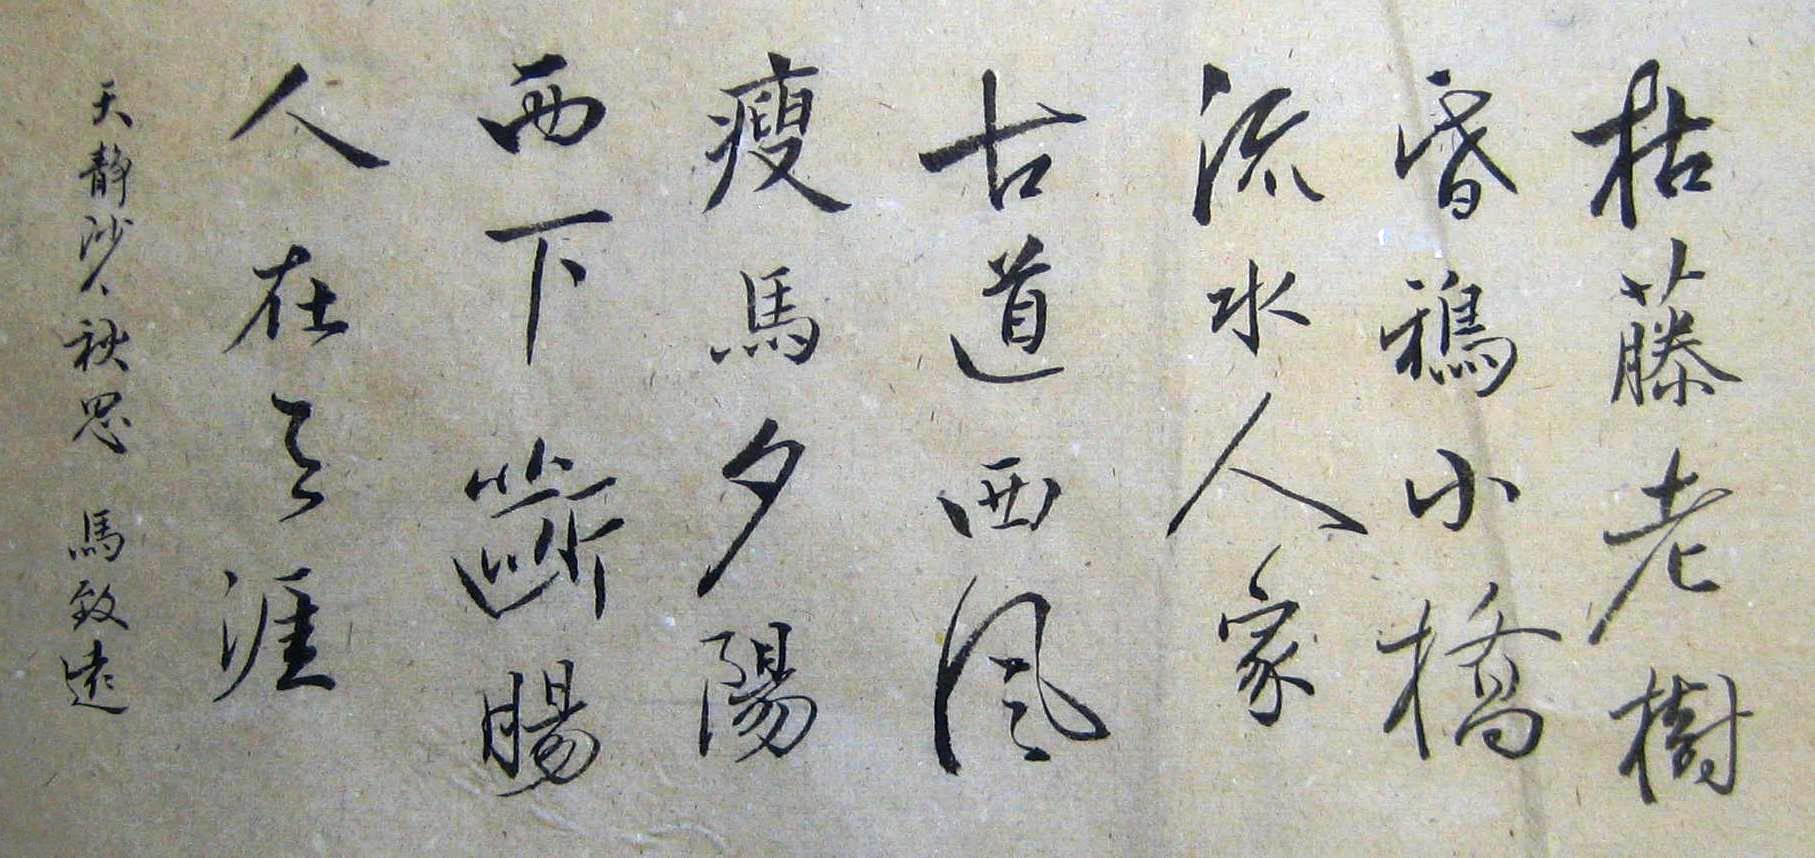 枯藤老樹
昏鴉小橋
流水人家
古道西風
瘦馬夕陽
西下斷腸
人在天涯
天静沙·秋思 馬致遠